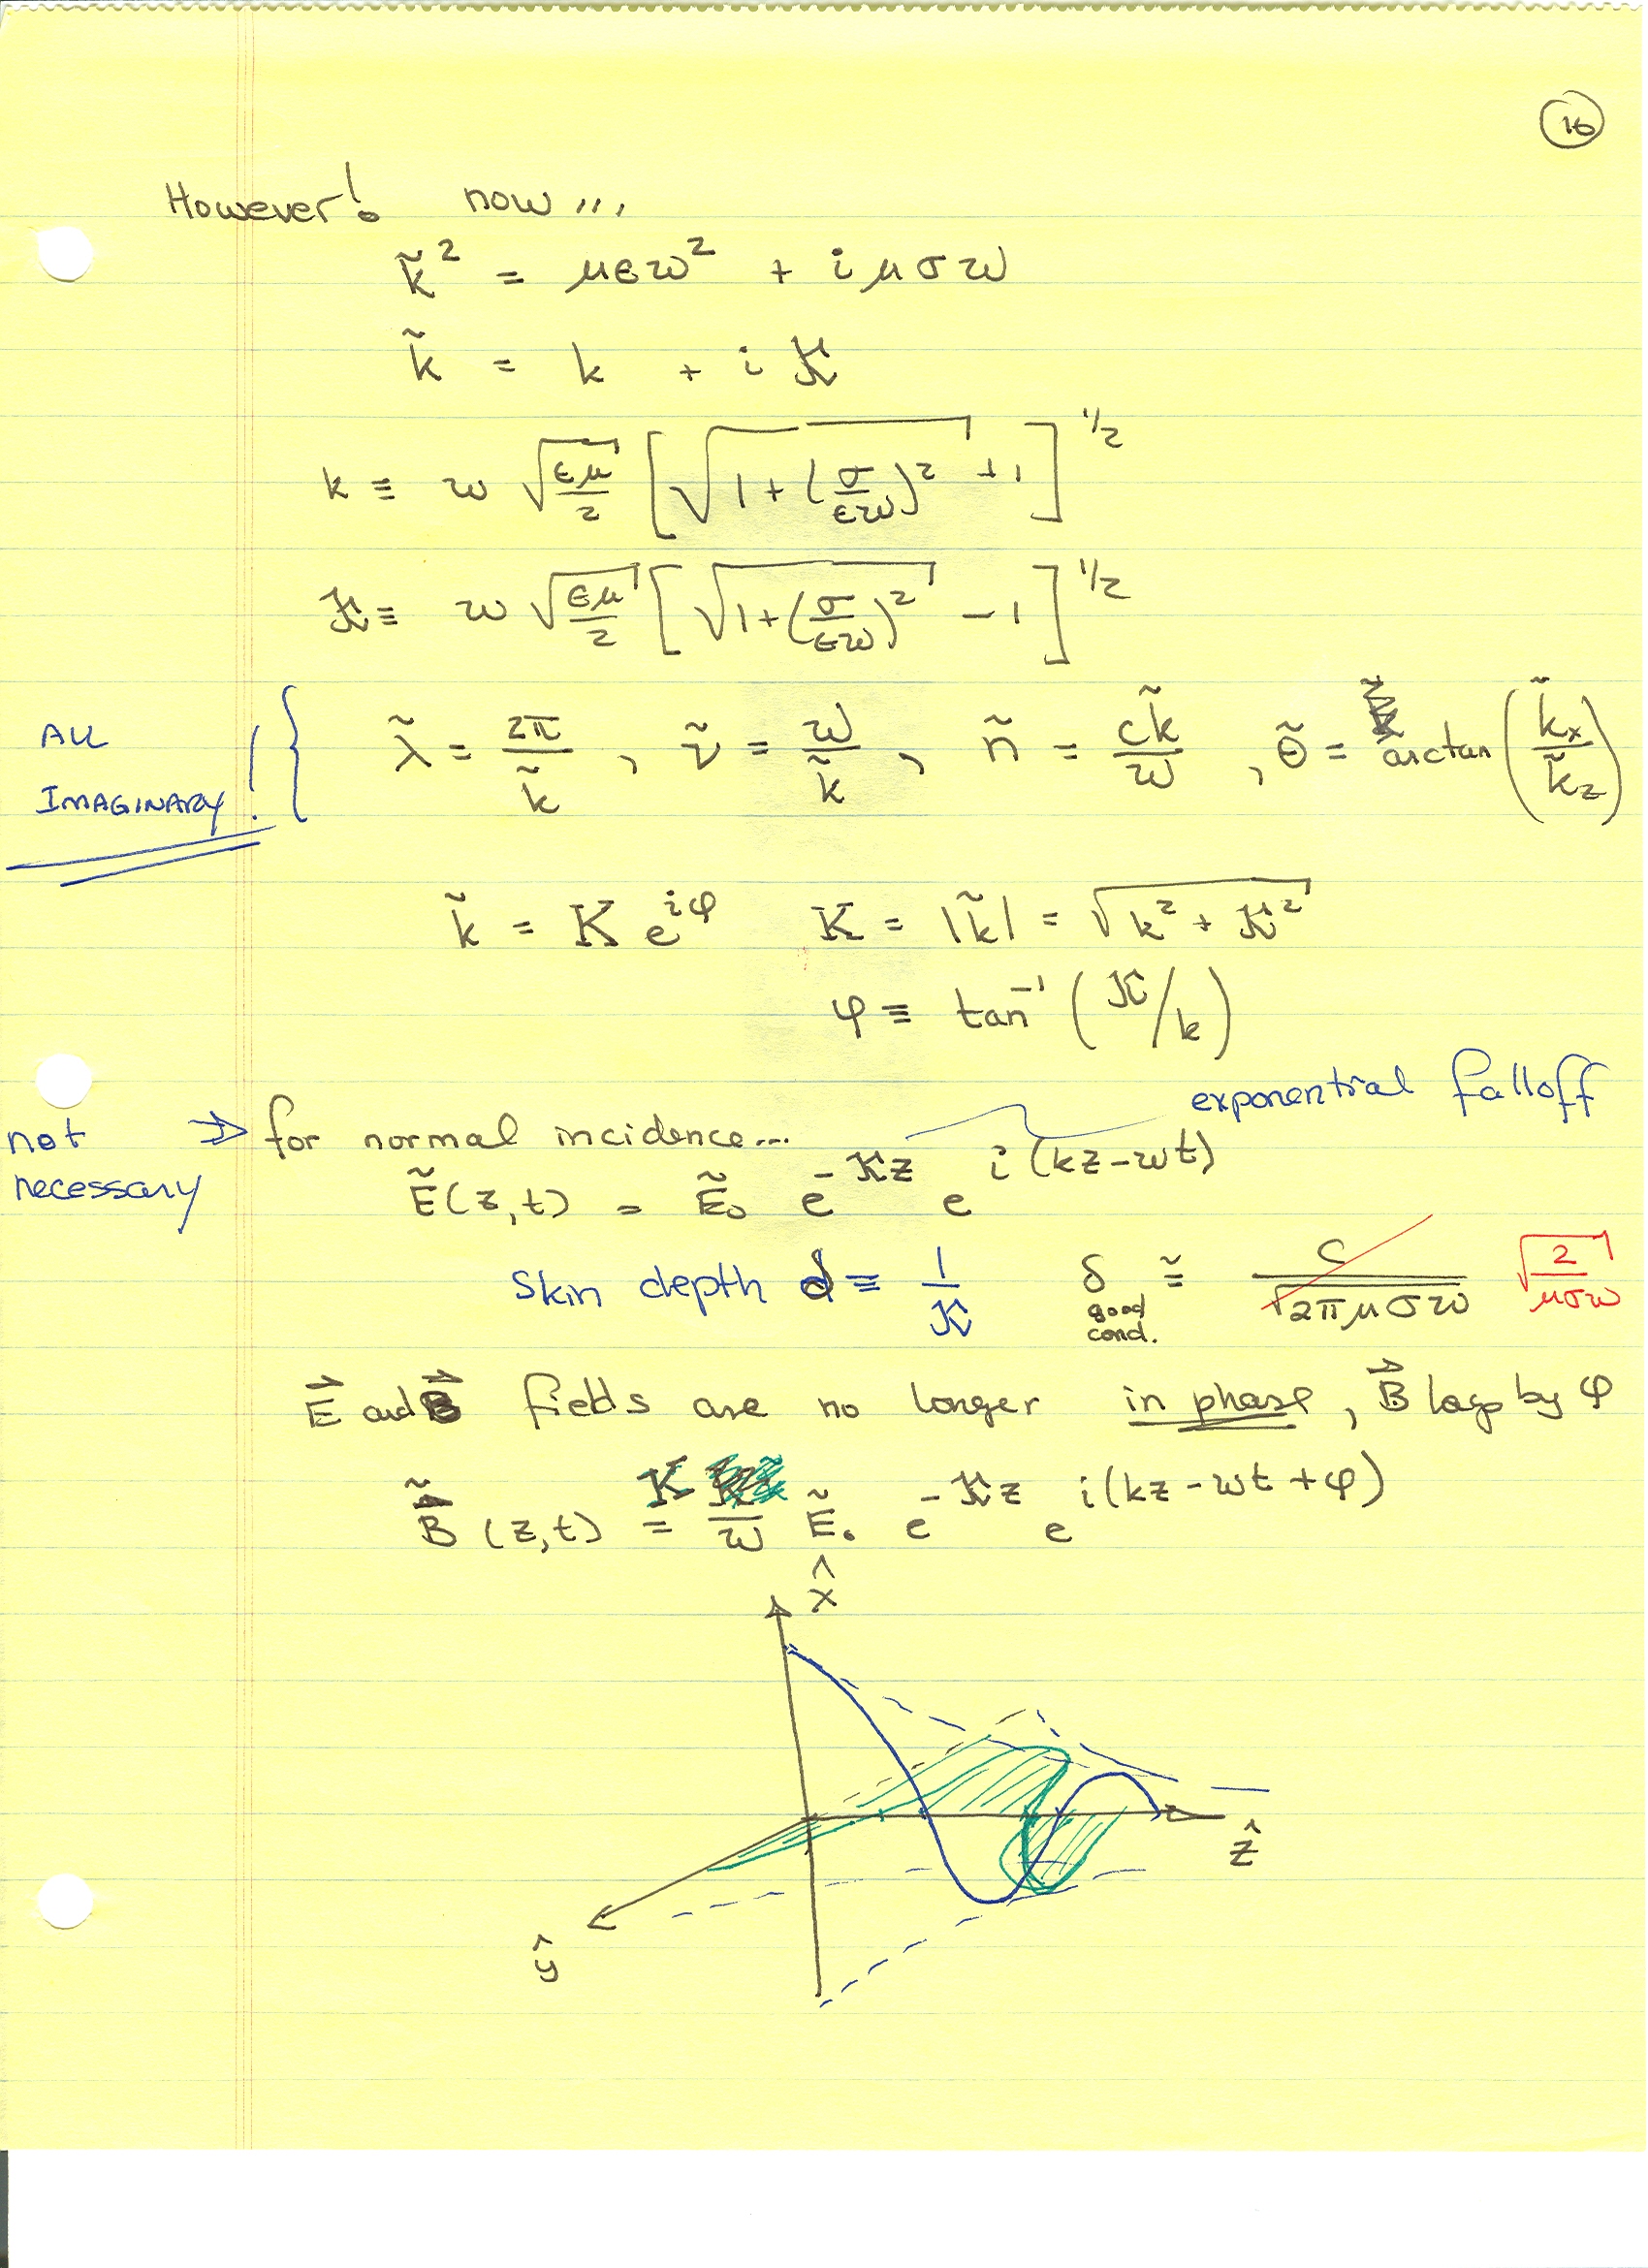 16
However! now...
k̃² = μεω² + iμσω
k̃ = k + i κ
k ≡ ω √(εμ/2) [√(1+(σ/εω)²) + 1]^1/2
κ ≡ ω √(εμ/2) [√(1+(σ/εω)²) - 1]^1/2
ALL IMAGINARY! { λ̃ = 2π/k̃ , ṽ = ω/k̃ , ñ = ck̃/ω , θ̃ = arctan(k̃x/k̃z)
k̃ = K e^iφ K = |k̃| = √(k² + κ²)
φ ≡ tan⁻¹(κ/k)
exponential falloff
not necessary ⇒ for normal incidence...
Ẽ(z,t) = Ẽ₀ e^-κz e^i(kz-ωt)
Skin depth d ≡ 1/κ δ good cond. ≅ c/√(2πμσω) √(2/μσω)
E⃗ and B⃗ fields are no longer in phase, B⃗ lags by φ
B̃(z,t) = K/ω Ẽ₀ e^-κz e^i(kz-ωt+φ)
x̂
ẑ
ŷ